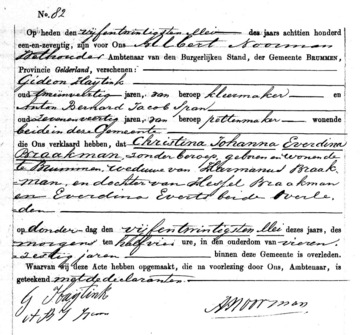 No. 82
Op heden den vijfentwintigsten Mei des jaars achttien honderd
een-en-zeventig, zijn voor Ons Albert Noorman
Wethouder Ambtenaar van den Burgerlijken Stand, der Gemeente BRUMMEN,
Provincie Gelderland, verschenen:
Gideon Haijtink
oud jaren, van beroep kleermaker en
Anton Berhard Jacob Spaan
oud zevenenveertig jaren, van beroep pottenmaker wonende
beide in deze Gemeente
die Ons verklaard hebben, dat Christina Johanna Everdina
Braakman, zonder beroep, geboren en wonende
te Brummen, weduwe van Hermanus Braak-
man, en dochter van Hessel Braakman
en Everdina Everts beide overle
den
op donderdag den vijfentwintigsten Mei dezes jaars, des
morgens ten half vier ure, in den ouderdom van vieren-
zestig jaren binnen deze Gemeente is overleden.
Waarvan wij deze Acte hebben opgemaakt, die na voorlezing door Ons, Ambtenaar, is
geteekend met de declaranten.
G Haijtink
A B J Spaan
A Noorman